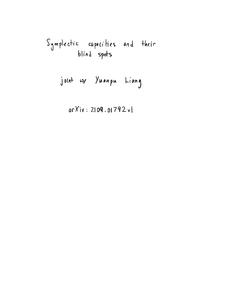 Symplectic capacities and their
blind spots
joint w/ Yuanpu Liang
arXiv: 2109.01792v1